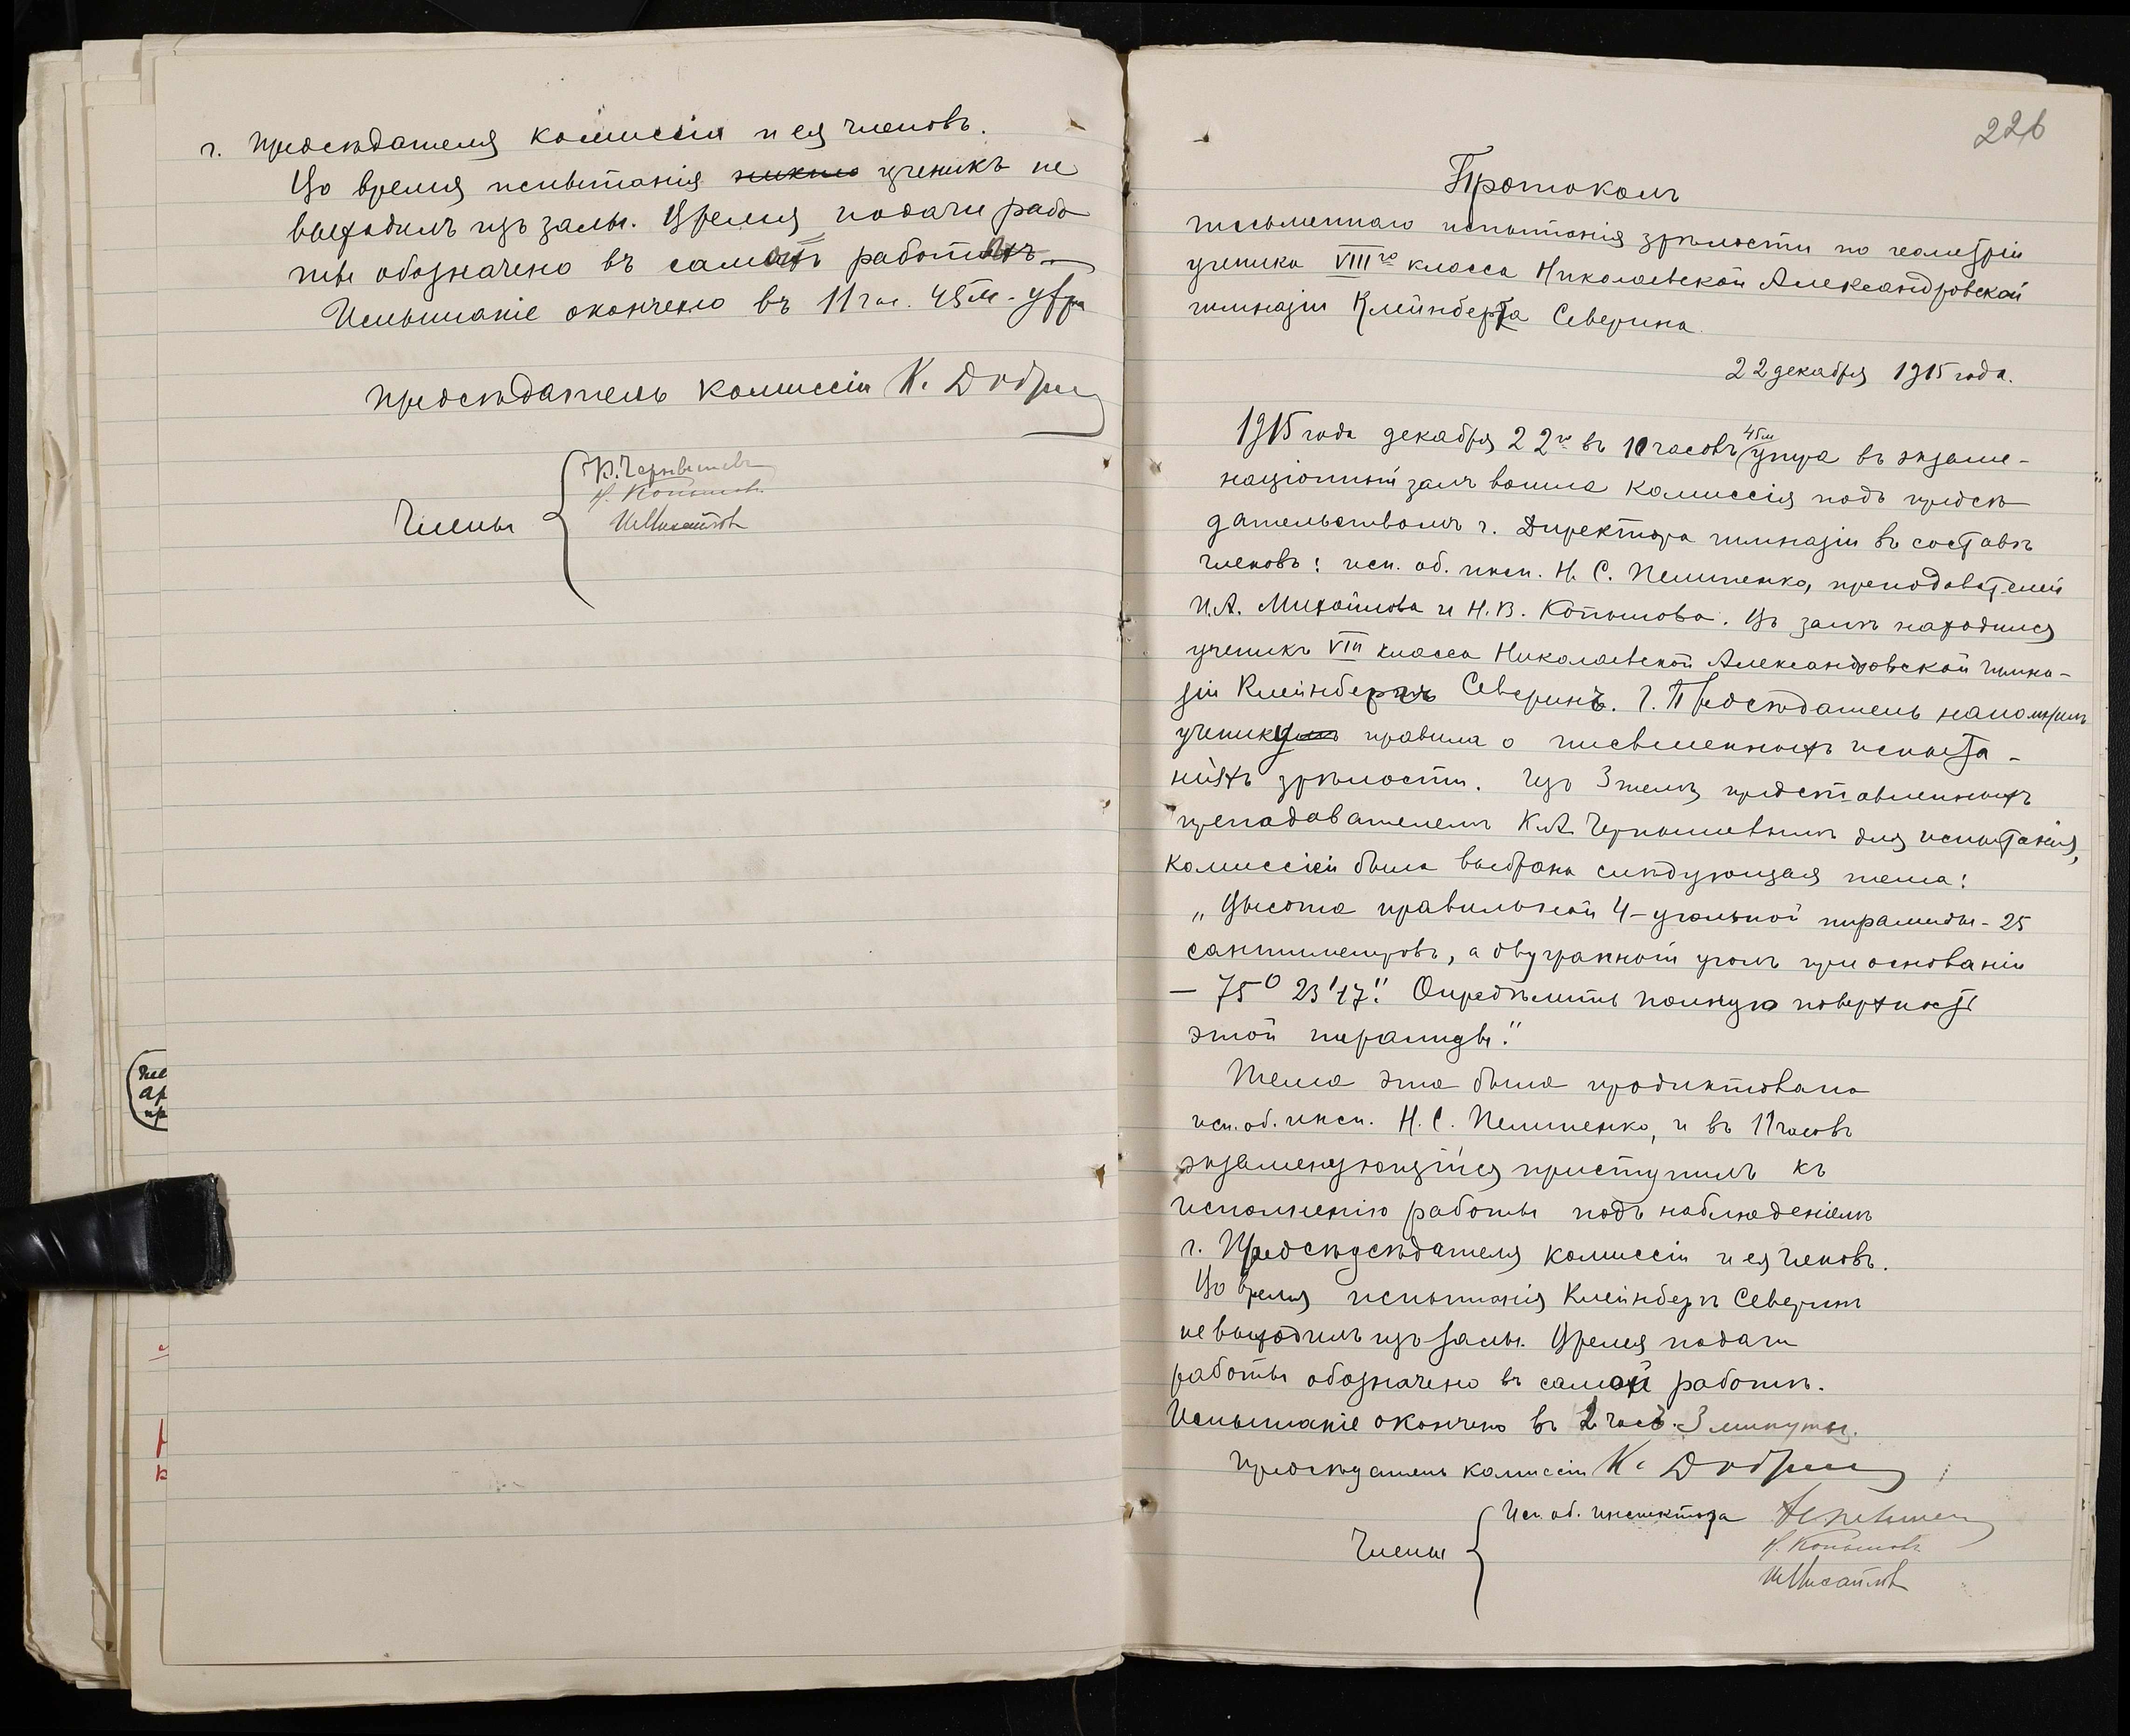 г. Предсѣдателя комиссіи и ея членовъ.
Во время испытанія никто ученикъ не
выходилъ изъ залы. Время подачи рабо
ты обозначено въ самой работѣ.
Испытаніе окончено въ 11 час. 45 м. утра
Предсѣдатель комиссіи К. Добр
Члены
К. Чернышевъ
Н. Копыловъ
И. Михайловъ
226
Протоколъ
письменнаго испытанія зрѣлости по геометріи
ученика VIIIго класса Николаевской Александровской
гимназіи Клейнберга Северина.
22 декабря 1915 года.
1915 года декабря 22го въ 10 часовъ 45м утра въ экзаме-
націонный залъ вошла комиссія подъ предсѣ
дательствомъ г. Директора гимназіи въ составѣ
членовъ: исп. об. инсп. Н. С. Пелипенко, преподавателей
И.А. Михайлова и Н.В. Копылова. Въ залѣ находился
ученикъ VIII класса Николаевской Александровской гимна-
зіи Клейнбергъ Северинъ. Г. Предсѣдатель напомнилъ
ученику правила о письменныхъ испыта-
ніяхъ зрѣлости. Изъ 3 темъ, представленныхъ
преподавателемъ К.А. Чернышевымъ для испытанія,
комиссіей была выбрана слѣдующая тема:
„Высота правильной 4-угольной пирамиды - 25
сантиметровъ, а двугранный уголъ при основаніи
— 75° 23' 17". Опредѣлить полную поверхность
этой пирамиды."
Тема эта была продиктована
исп. об. инсп. Н. С. Пелипенко, и въ 11 часовъ
экзаменующійся приступилъ къ
исполненію работы подъ наблюденіемъ
г. Предсѣдсѣдателя комиссіи и ея членовъ.
Во время испытанія Клейнбергъ Северинъ
не выходилъ изъ залы. Время подачи
работы обозначено въ самой работѣ.
Испытаніе окончено въ 2 час. 3 минуты.
Предсѣдатель комиссіи К. Добр
Члены
Исп. об. инспектора Н. Пелипен
Н. Копыловъ
И. Михайловъ